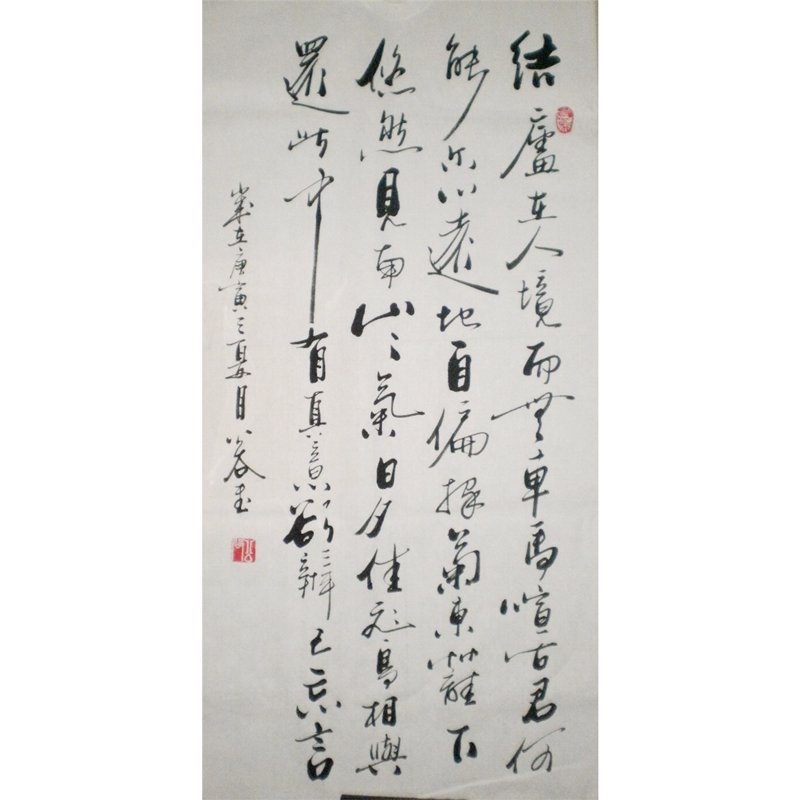 結廬在人境而無車馬喧问君何
能尔心遠地自偏採菊東籬下
悠然見南山〻氣日夕佳飛鳥相與
還此中有真意欲辨已忘言
歲在庚寅之夏月書